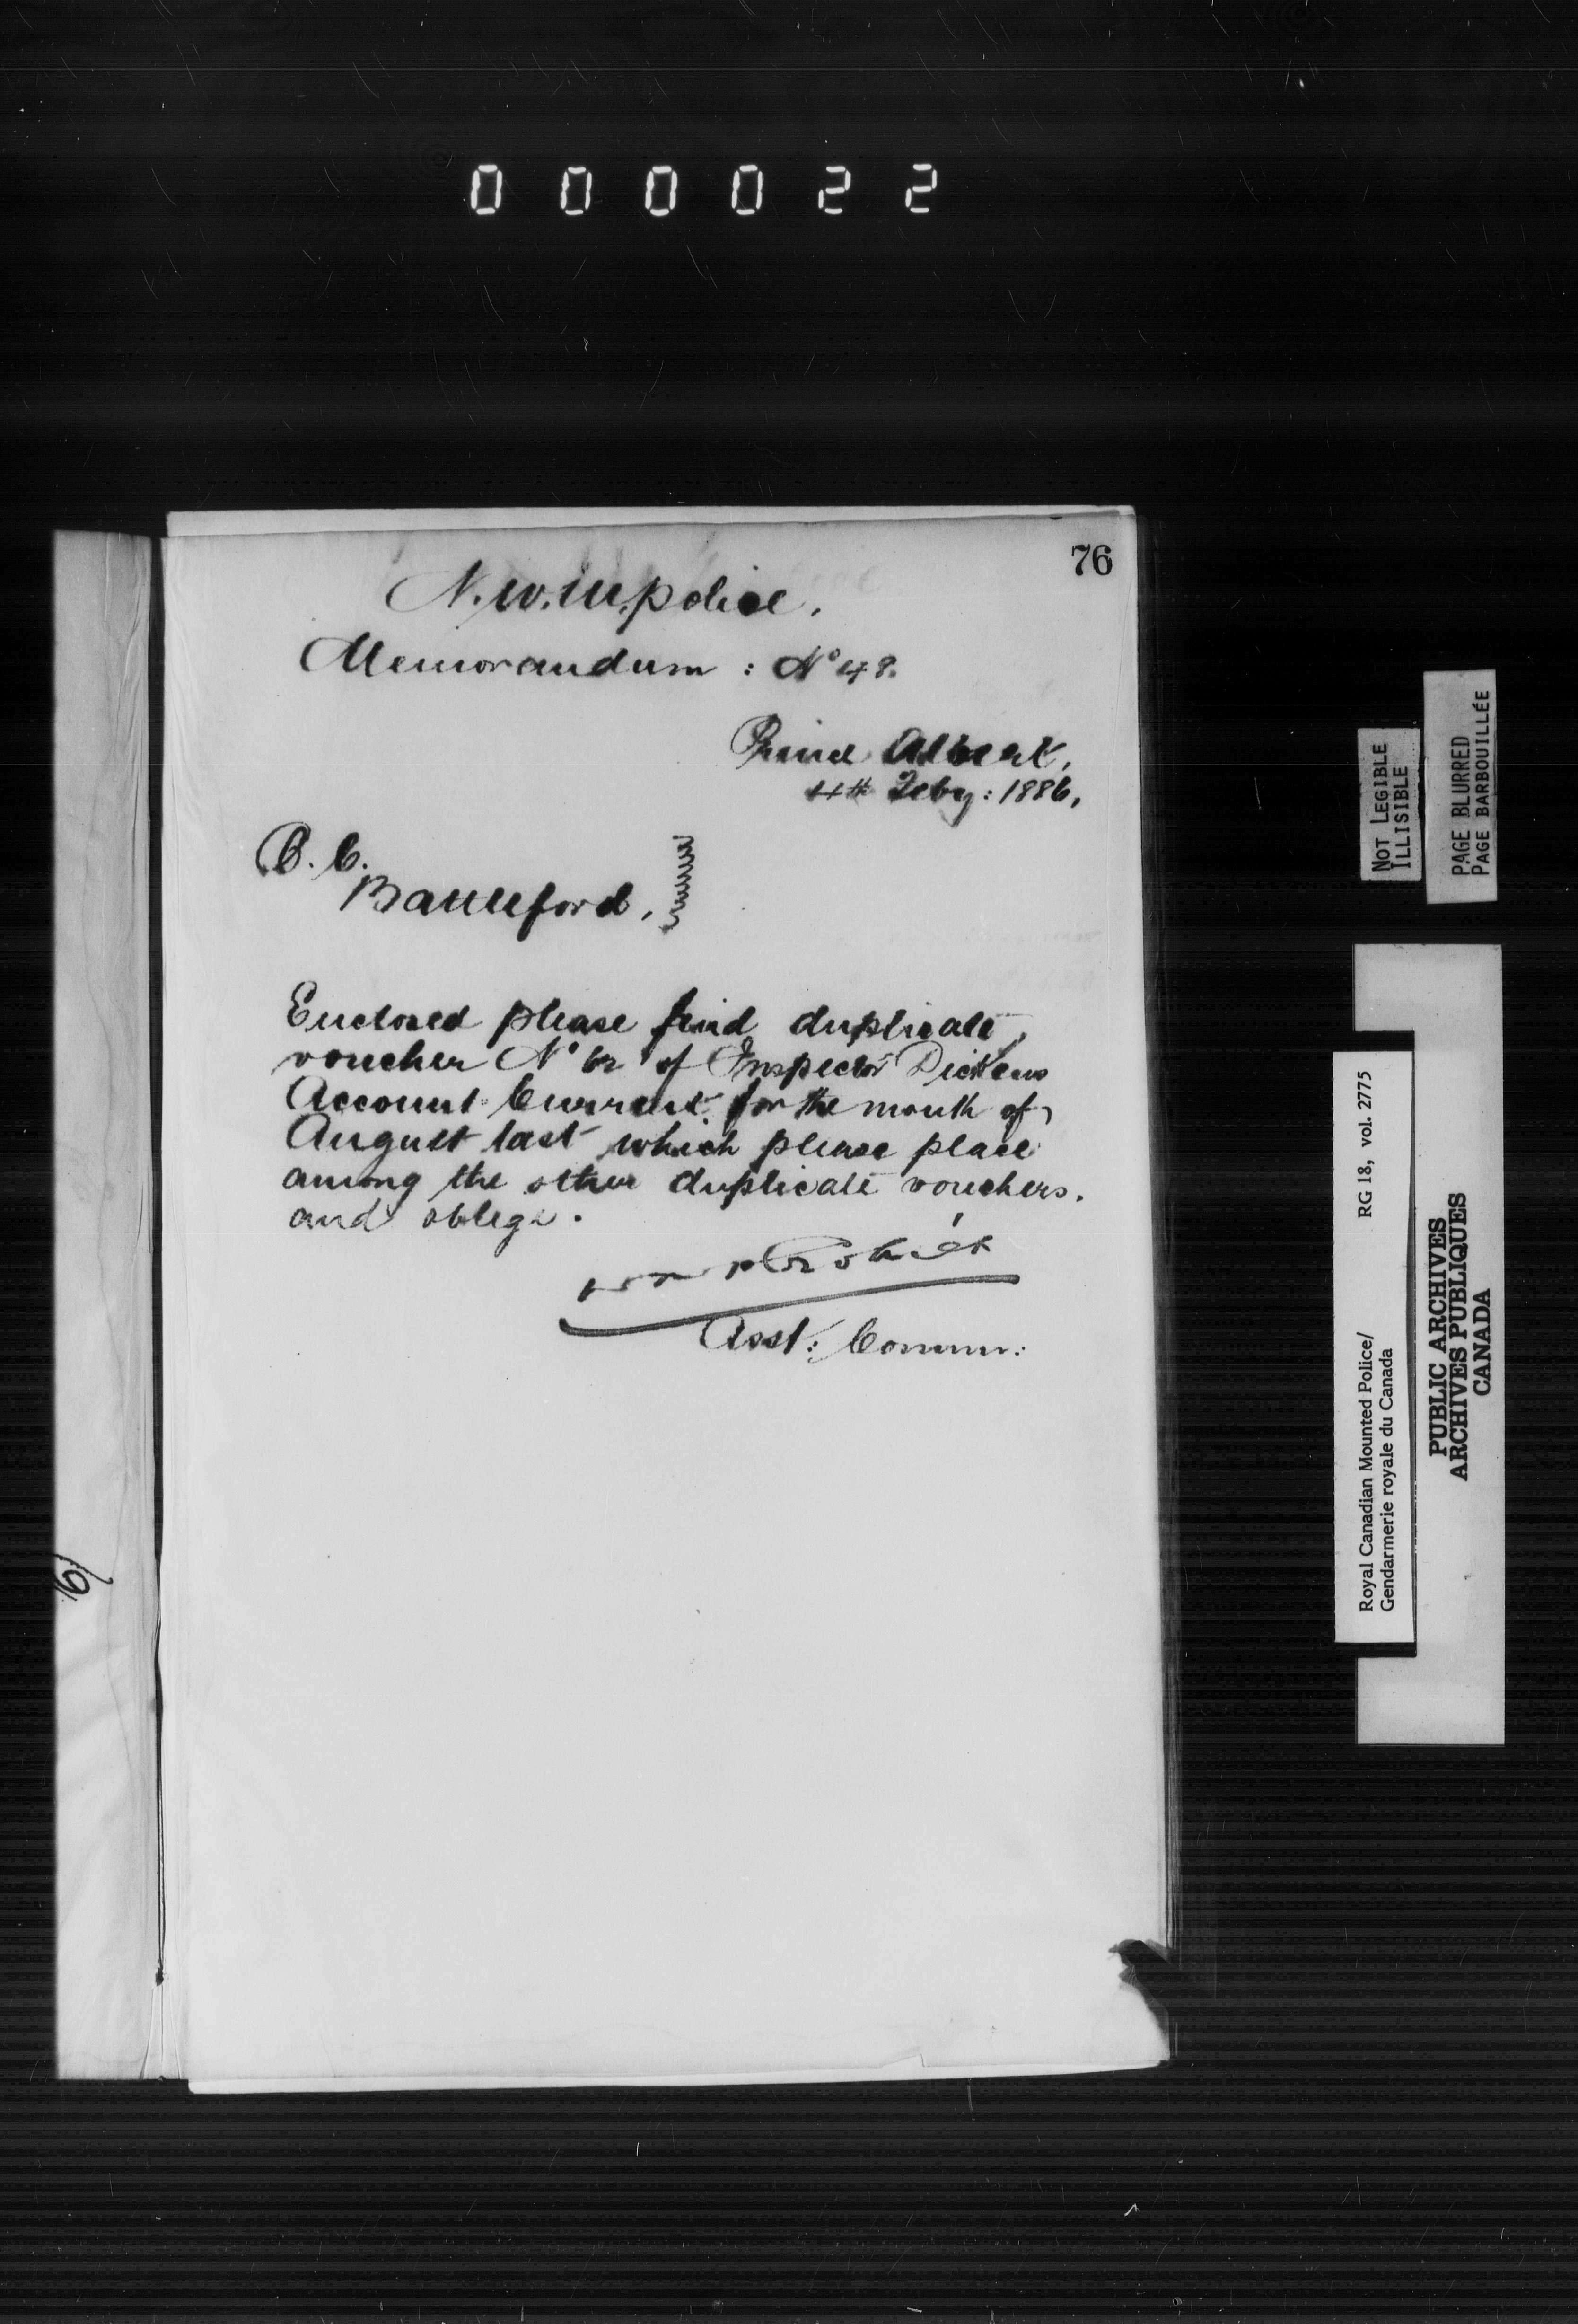 000022
76
N.W.M. police.
Memorandum : Nº 48.
Prince Albert,
4th Feby: 1886,
O. C.
Battleford,
Enclosed please find duplicate
voucher Nº of Inspector Dickens
Account Current for the month of
August last which please place
among the other duplicate vouchers.
and oblige.
Asst: Comm:
6
NOT LEGIBLE
ILLISIBLE
PAGE BLURRED
PAGE BARBOUILLÉE
Royal Canadian Mounted Police/ RG 18, vol. 2775
Gendarmerie royale du Canada
PUBLIC ARCHIVES
ARCHIVES PUBLIQUES
CANADA